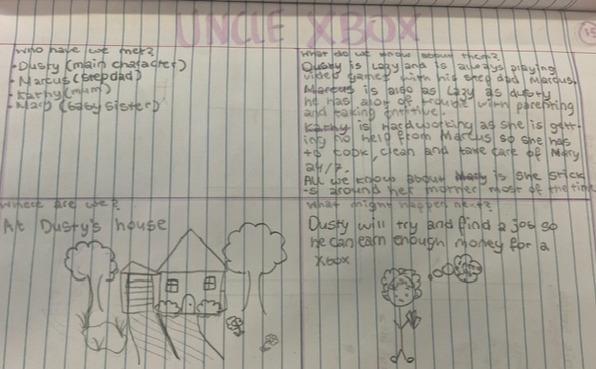 UNCLE XBOX
15
Who have we met?
•Dusty (main character)
•Marcus (stepdad)
•Kathy (mum)
•Mary (baby sister)
What do we know about them?
Dusty is Lazy and is always playing
video games with his step dad Marcus.
Marcus is also as Lazy as dusty
he has alot of trouble with parenting
and taking
Kathy is Hardworking as she is gett-
ing no help from Marcus so she has
to cook, clean and take care of Mary
24/7.
All we know about Mary is she stick
-s around her mother most of the time
Where are we?
At Dusty's house
What might happen next?
Dusty will try and find a job so
he can earn enough money for a
xbox